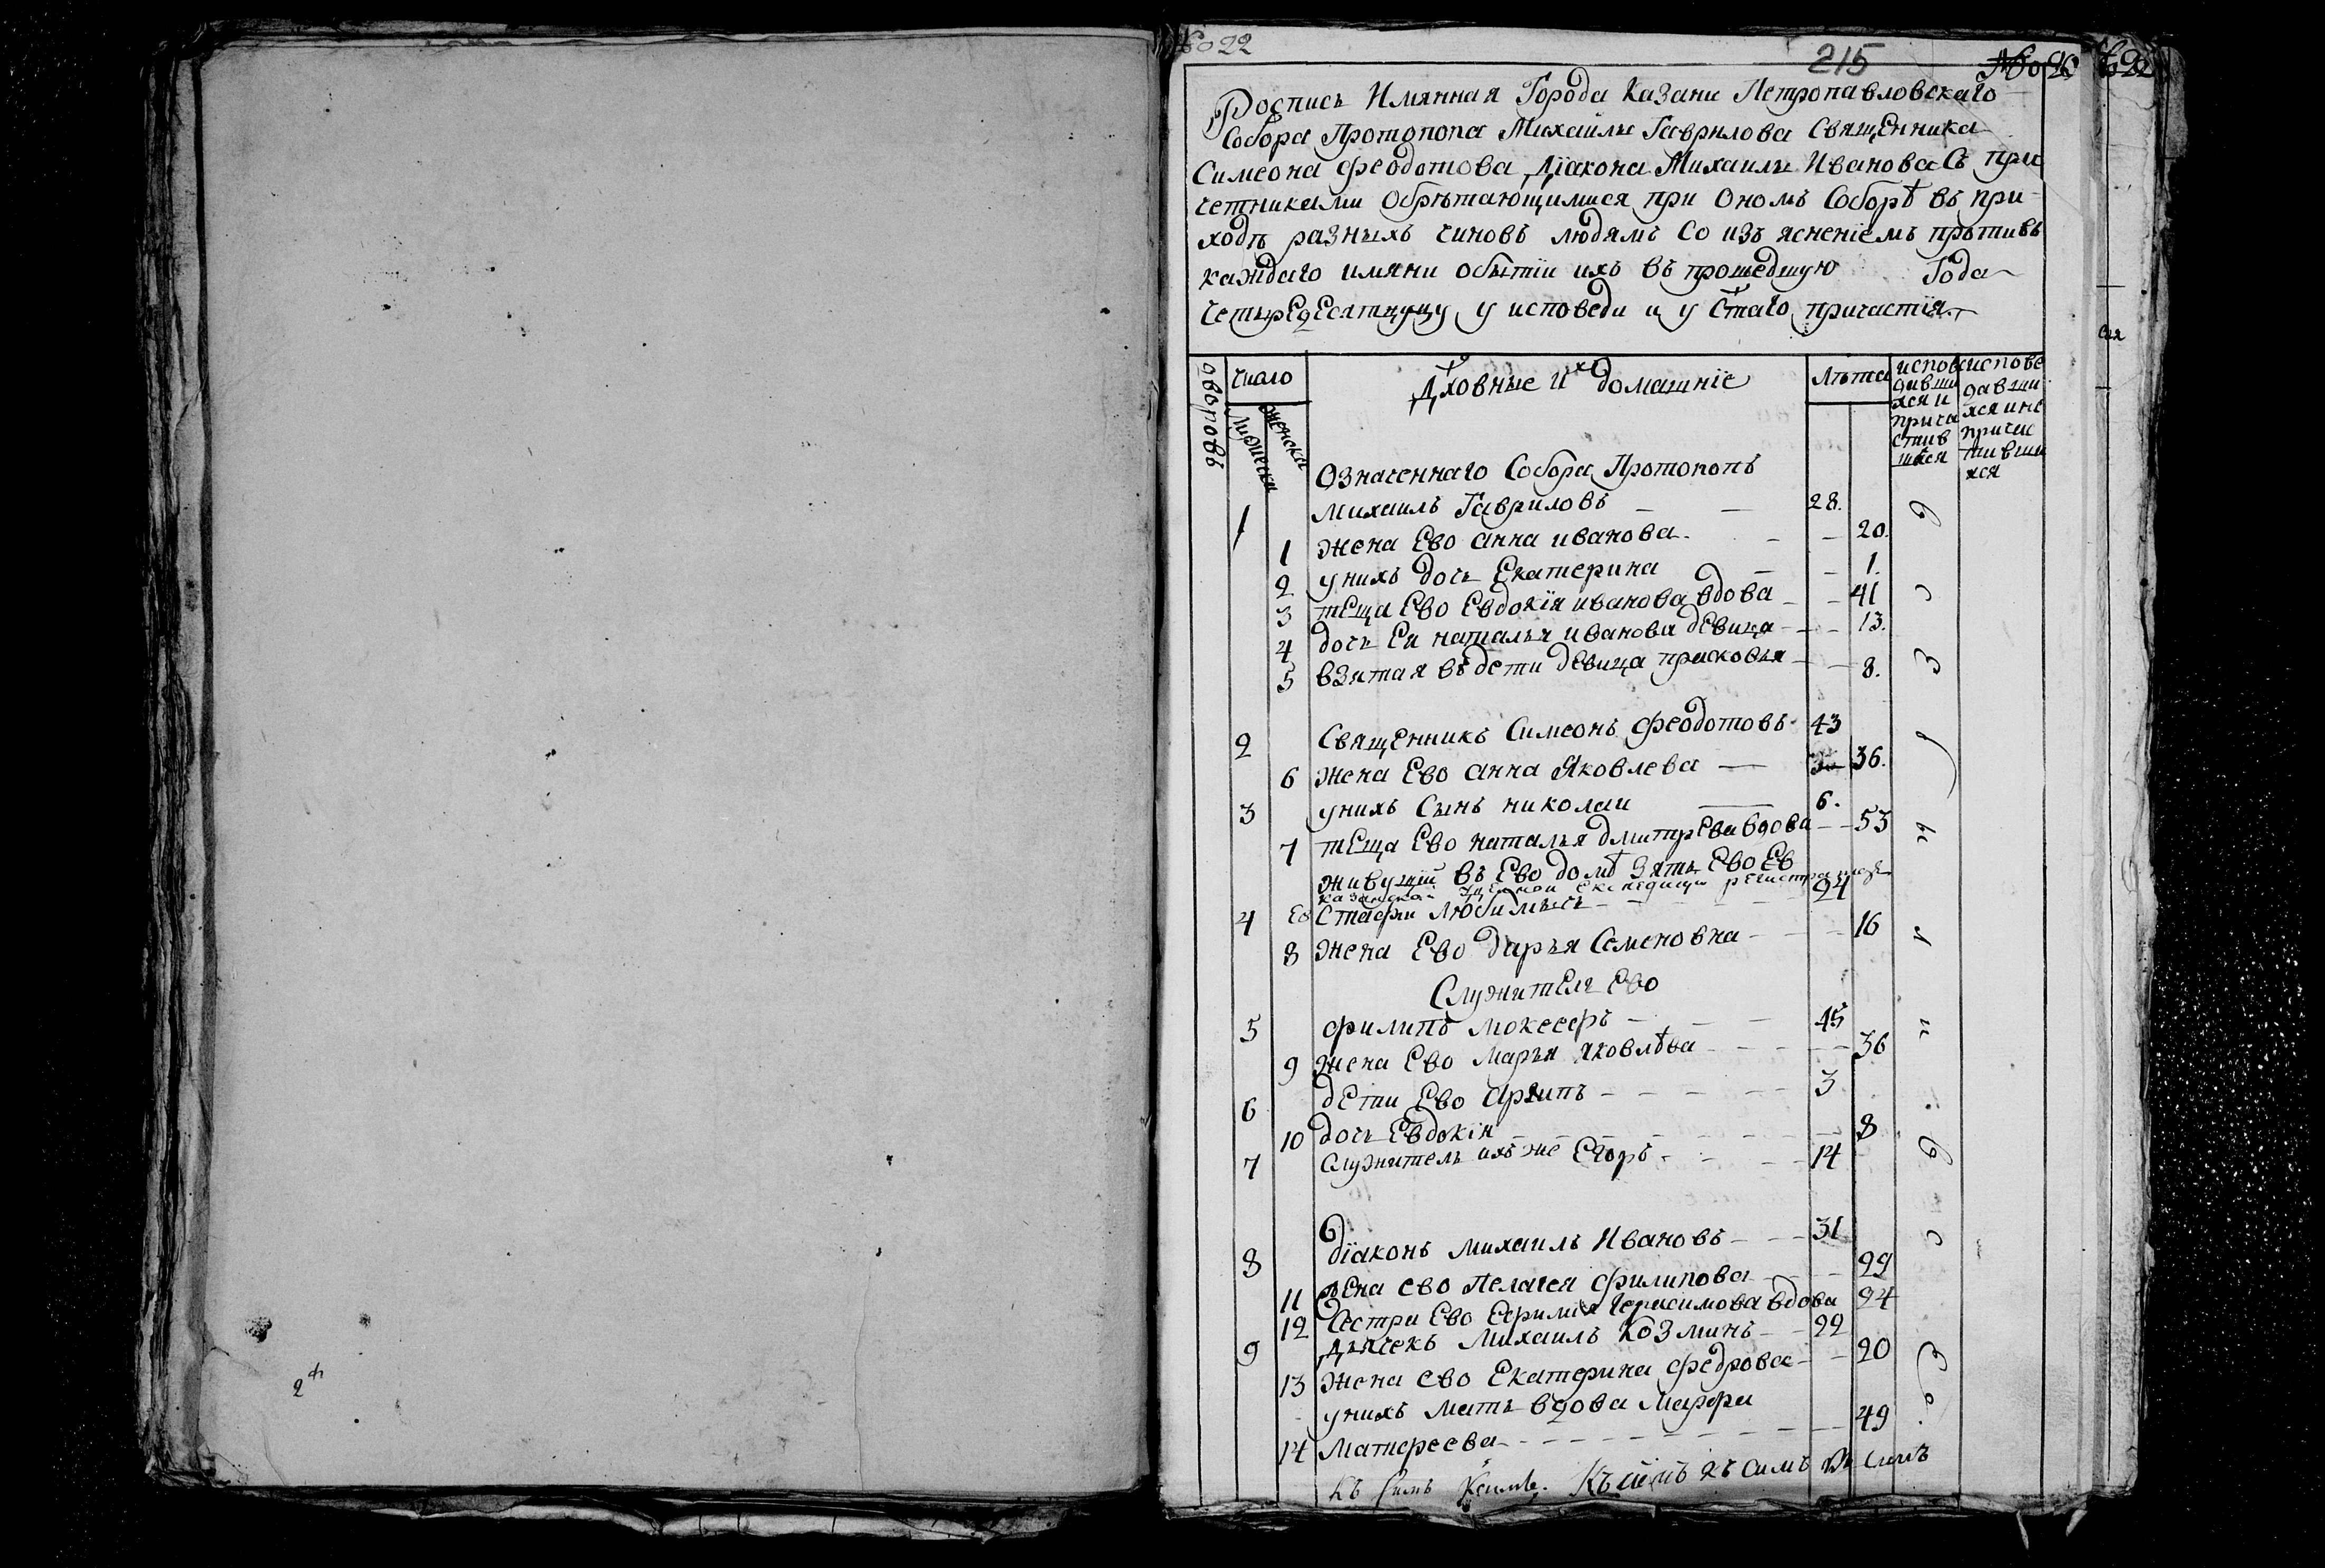 № 22
215
Роспись Имянная Города Казани Петропавловскаго
Собора Протопопа Михаилы Гаврилова Священника
Симеона Феодотова Діакона Михаилы Иванова Съ при
четниками Обрѣтающимися при Ономъ Соборѣ въ при-
ходѣ разныхъ чиновъ людямъ Со изъ яснениемъ прѣтивъ
каждаго имяни обытіи ихъ въ прошедшую Года
Четыредесятницу у исповеди и у Стаго причастія
дворовъ
Число
мужеска
женска
Дховные И ихъ домашніе
Лѣта
испове
давши
яся и
прича
стив
шияся
исповѣ
давши
яся и не
причас
тивши
яся
Означеннаго Собора Протопопъ
1 Михаилъ Гавриловъ — — 28.
1 жена Ево анна иванова - — 20.
2 унихъ дочь Екатерина — 1.
3 теща Ево Евдокія иванова вдова — 41
4 дочь Ея наталья иванова девица — 13.
5 взятая въ дети девица прасковья — 8.
2 Священникъ Симеонъ Феодотовъ 43
6 жена Ево анна Яковлева — 36.
3 унихъ Сынъ николаи — 6.
7 теща Ево наталья дмитрева вдова — 53
живущій въ Ево домѣ зять Ево Ев
экспедици регистраторъ
4 Стафи Любимычь — 24
8 жена Ево дарья Семеновна — 16
Служитель Ево
5 филипъ мокеефъ — 45
9 жена Ево марья яковлѣва — 36
6 дети Ево архипъ — 3
10 дочь Евдокія — 8
7 служитель ихъ же Егоръ — 14
8 діаконъ михаилъ Ивановъ — 31
11 жена ево пелагея филипова — 29
12 Сестра Ево Ефимія герасимова вдова 24
9 Дьячекъ Михаилъ Козминъ — 22
13 жена ево Екатерина федрова — 20
унихъ мать вдова Марфа
14 матфеева — 49
Къ Симъ Къ симъ къ симъ
2